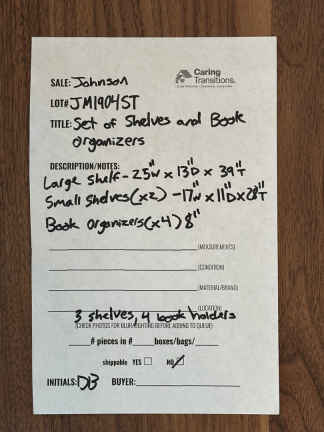 SALE: Johnson
Caring Transitions.
LOT# JM1904ST
TITLE: Set of Shelves and Book
Organizers
DESCRIPTION/NOTES:
Large Shelf - 25"W x 13"D x 39"T
Small Shelves (x2) - 17"W x 11"D x 28"T
Book Organizers (x4) 8"
(MEASUREMENTS)
(CONDITION)
(MATERIAL/BRAND)
(LOCATION)
3 shelves, 4 book holders
(CHECK PHOTOS FOR BLUR/LIGHTING BEFORE ADDING TO QUEUE)
# pieces in # boxes/bags/
shippable YES NO
INITIALS: DB BUYER: